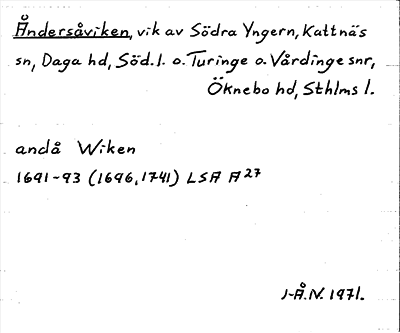 Åndersåviken, vik av Södra Yngern, Kattnäs
sn, Daga hd, Söd. l. o. Turinge o. Vårdinge snr,
Öknebo hd, Sthlms l.
andå Wiken
1691-93 (1696, 1741) LSA A27
J-Å.N. 1971.